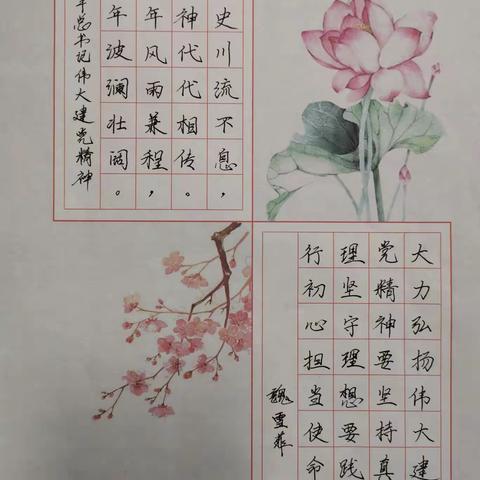 史川流不息，
神代代相传。
年风雨兼程，
年波澜壮阔。
总书记伟大建党精神
大力弘扬伟大建
党精神要坚持真
理坚守理想要践
行初心担当使命
魏雪菲